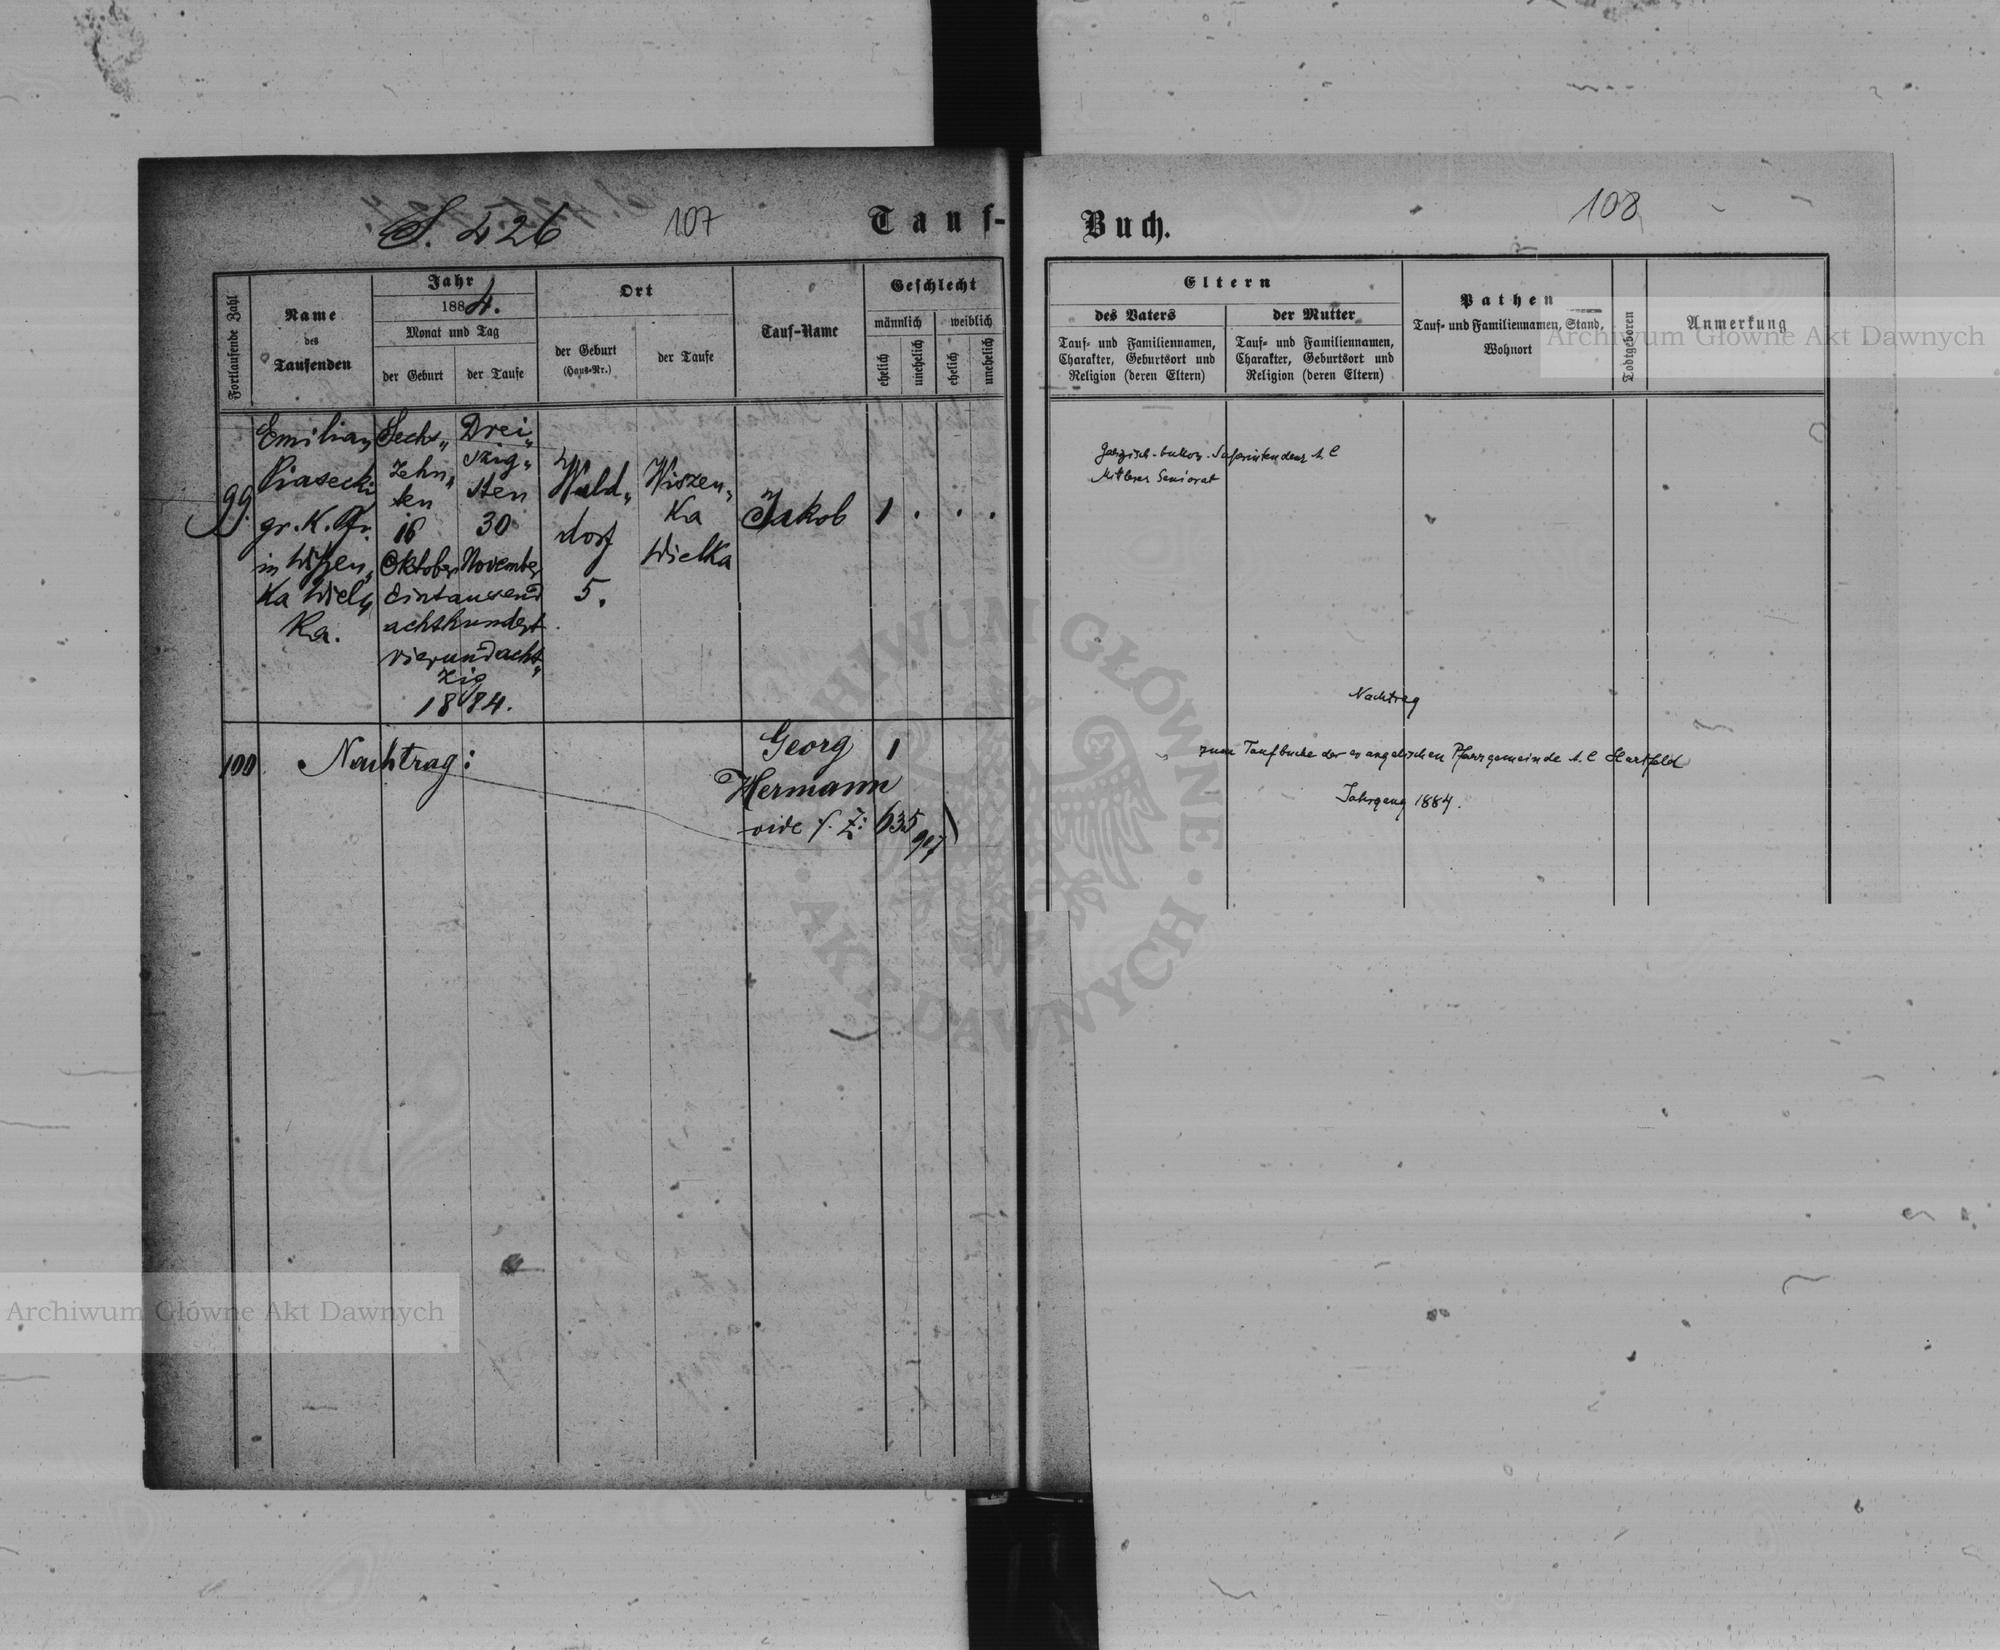 S. 426
107
Tauf-
Buch.
108
Fortlaufende Zahl
Name
des
Taufenden
Jahr
1884.
Monat und Tag
der Geburt
der Taufe
Ort
der Geburt
(Haus-Nr.)
der Taufe
Tauf-Name
Geschlecht
männlich
weiblich
ehelich
unehelich
ehelich
unehelich
Eltern
des Vaters
Tauf- und Familiennamen,
Charakter, Geburtsort und
Religion (deren Eltern)
der Mutter
Tauf- und Familiennamen,
Charakter, Geburtsort und
Religion (deren Eltern)
Pathen
Tauf- und Familiennamen, Stand,
Wohnort
Todtgeboren
Anmerkung
99.
Emilian
Piasecki
gr. K. Pfr.
in Wiszen„
Ka Wiel„
Ka.
Sechs„
zehn„
ten
16
Oktober
Drei„
szig„
sten
30
November
Eintausend
achthundert
vierundacht„
zig
1884.
Wald„
dorf
5.
Wiszen„
Ka
Wielka
Jakob
1 . . .
100
Nachtrag:
Georg
Hermann
1
vide s. Z: 635
917)
Galizisch-bukow. Superintendenz A. C
Mittleres Seniorat
Nachtrag
zum Taufbuche der evangelischen Pfarrgemeinde A. C Hartfeld
Jahrgang 1884.
Archiwum Główne Akt Dawnych
Archiwum Główne Akt Dawnych
ARCHIWUM GŁÓWNE · AKT DAWNYCH ·